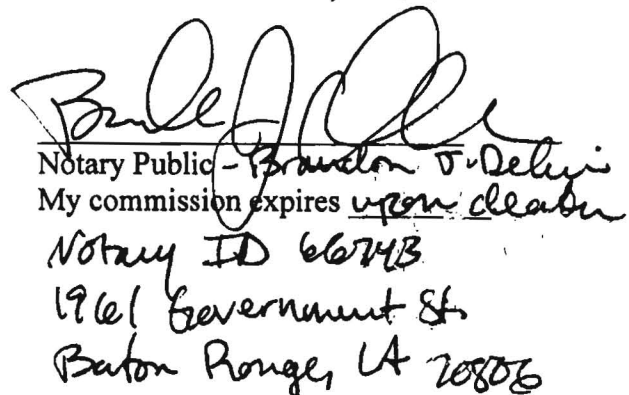 Notary Public - Brandon J. DeJ
My commission expires upon death
Notary ID 66743
1961 Government St.
Baton Rouge, LA 70806